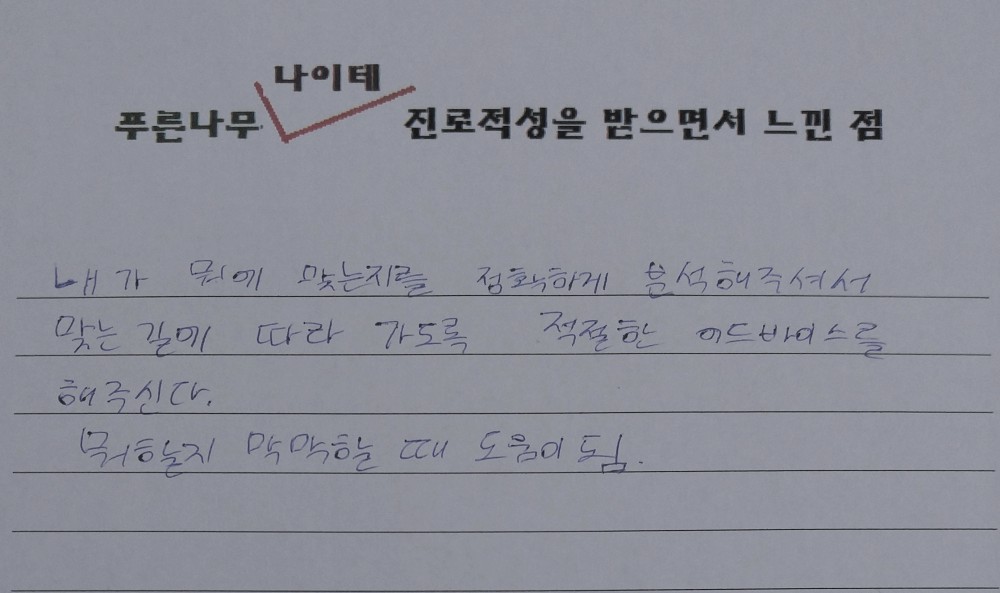 나이테
푸른나무 진로적성을 받으면서 느낀 점
내가 뭐에 맞는지를 정확하게 분석해주셔서
맞는 길에 따라 가도록 적절한 어드바이스를
해주신다.
뭐할지 막막할 때 도움이 됨.